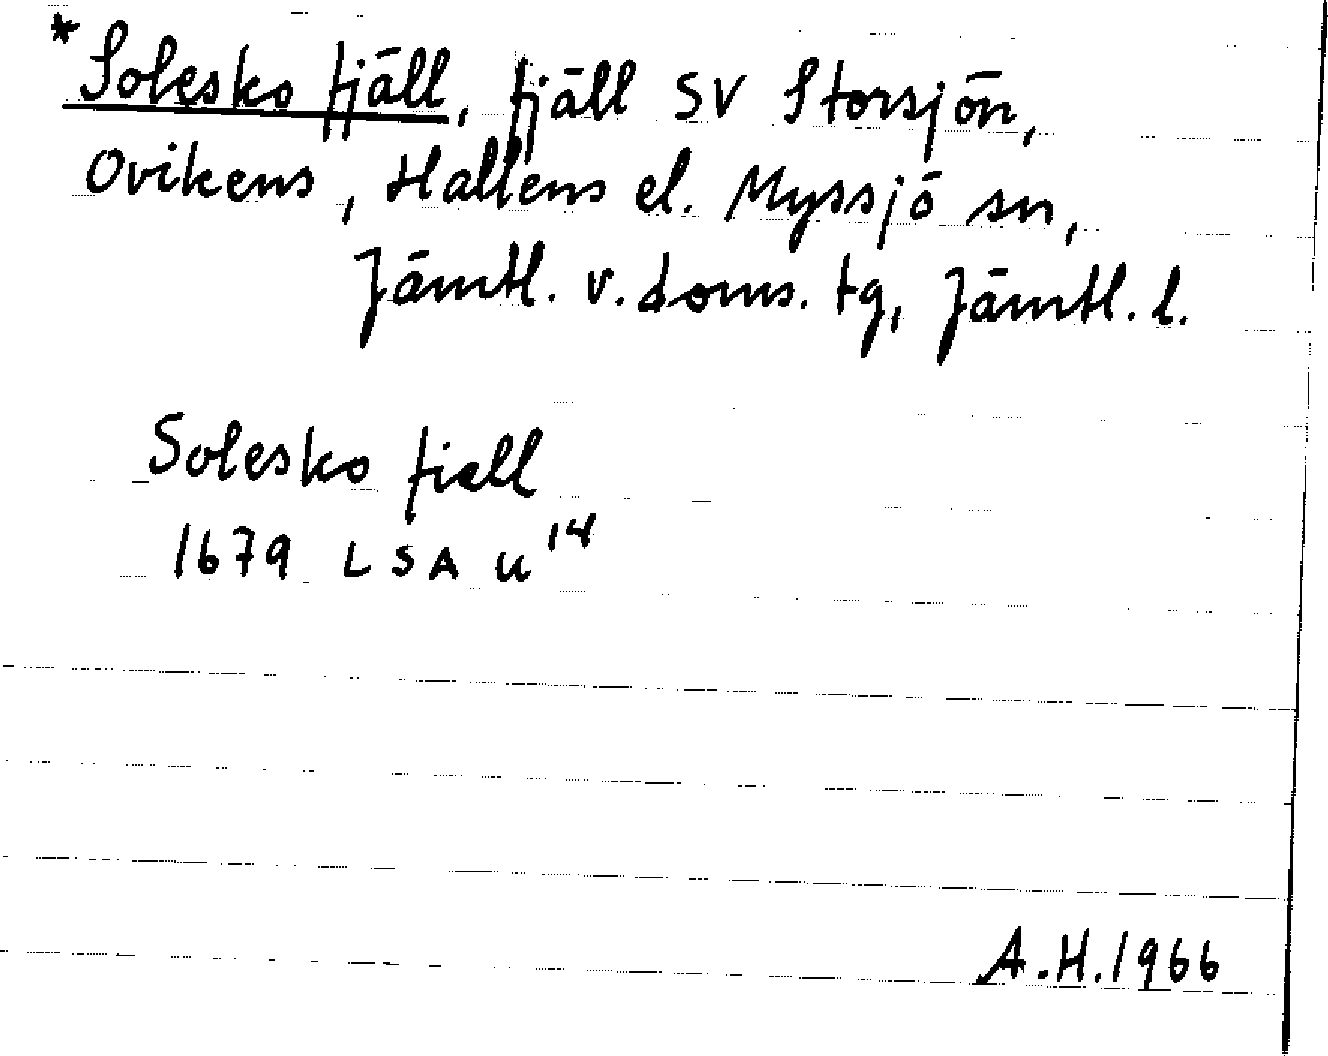 *Solesko fjäll, fjäll SV Storsjön,
Ovikens, Hallens el. Myssjö sn,
Jämtl. v. doms. tg, Jämtl. l.
Solesko fiell
1679 LSA U¹⁴
A.H. 1966